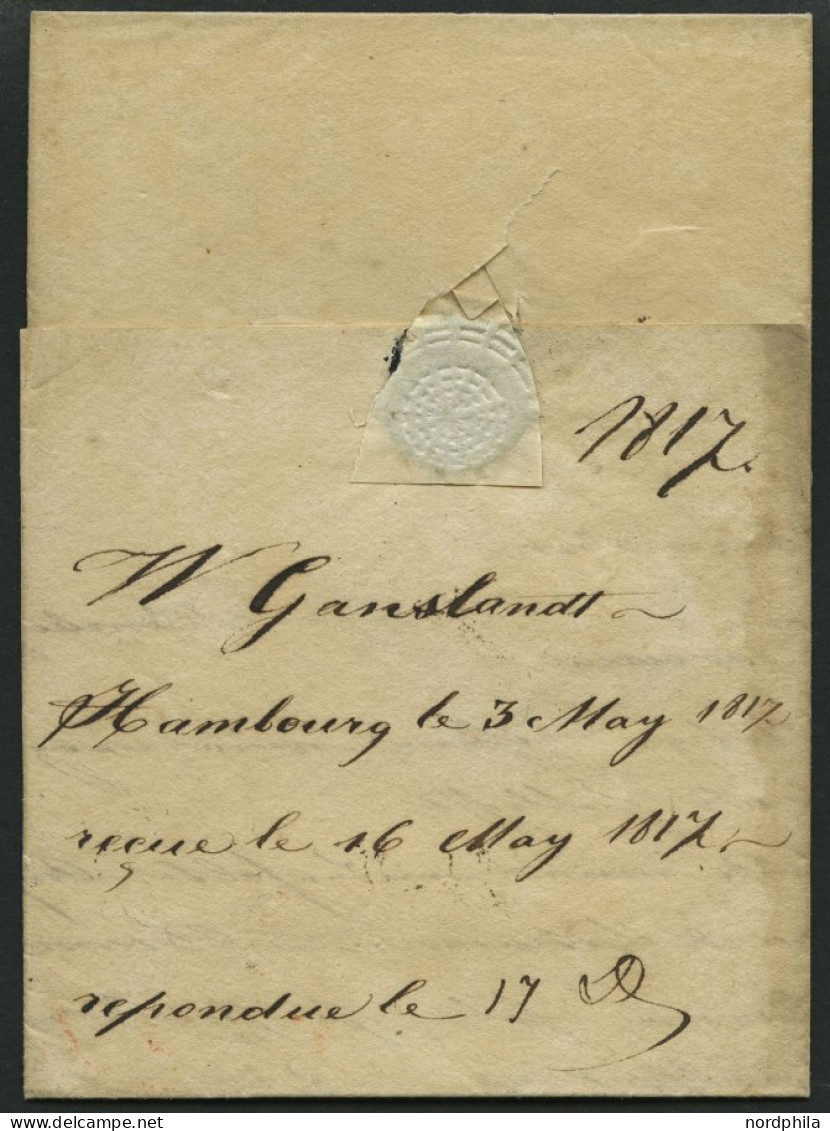 1817.
W Ganslandt
Hambourg le 3 May 1817
reçue le 16 May 1817
repondue le 17
www.delcampe.net
nordphila